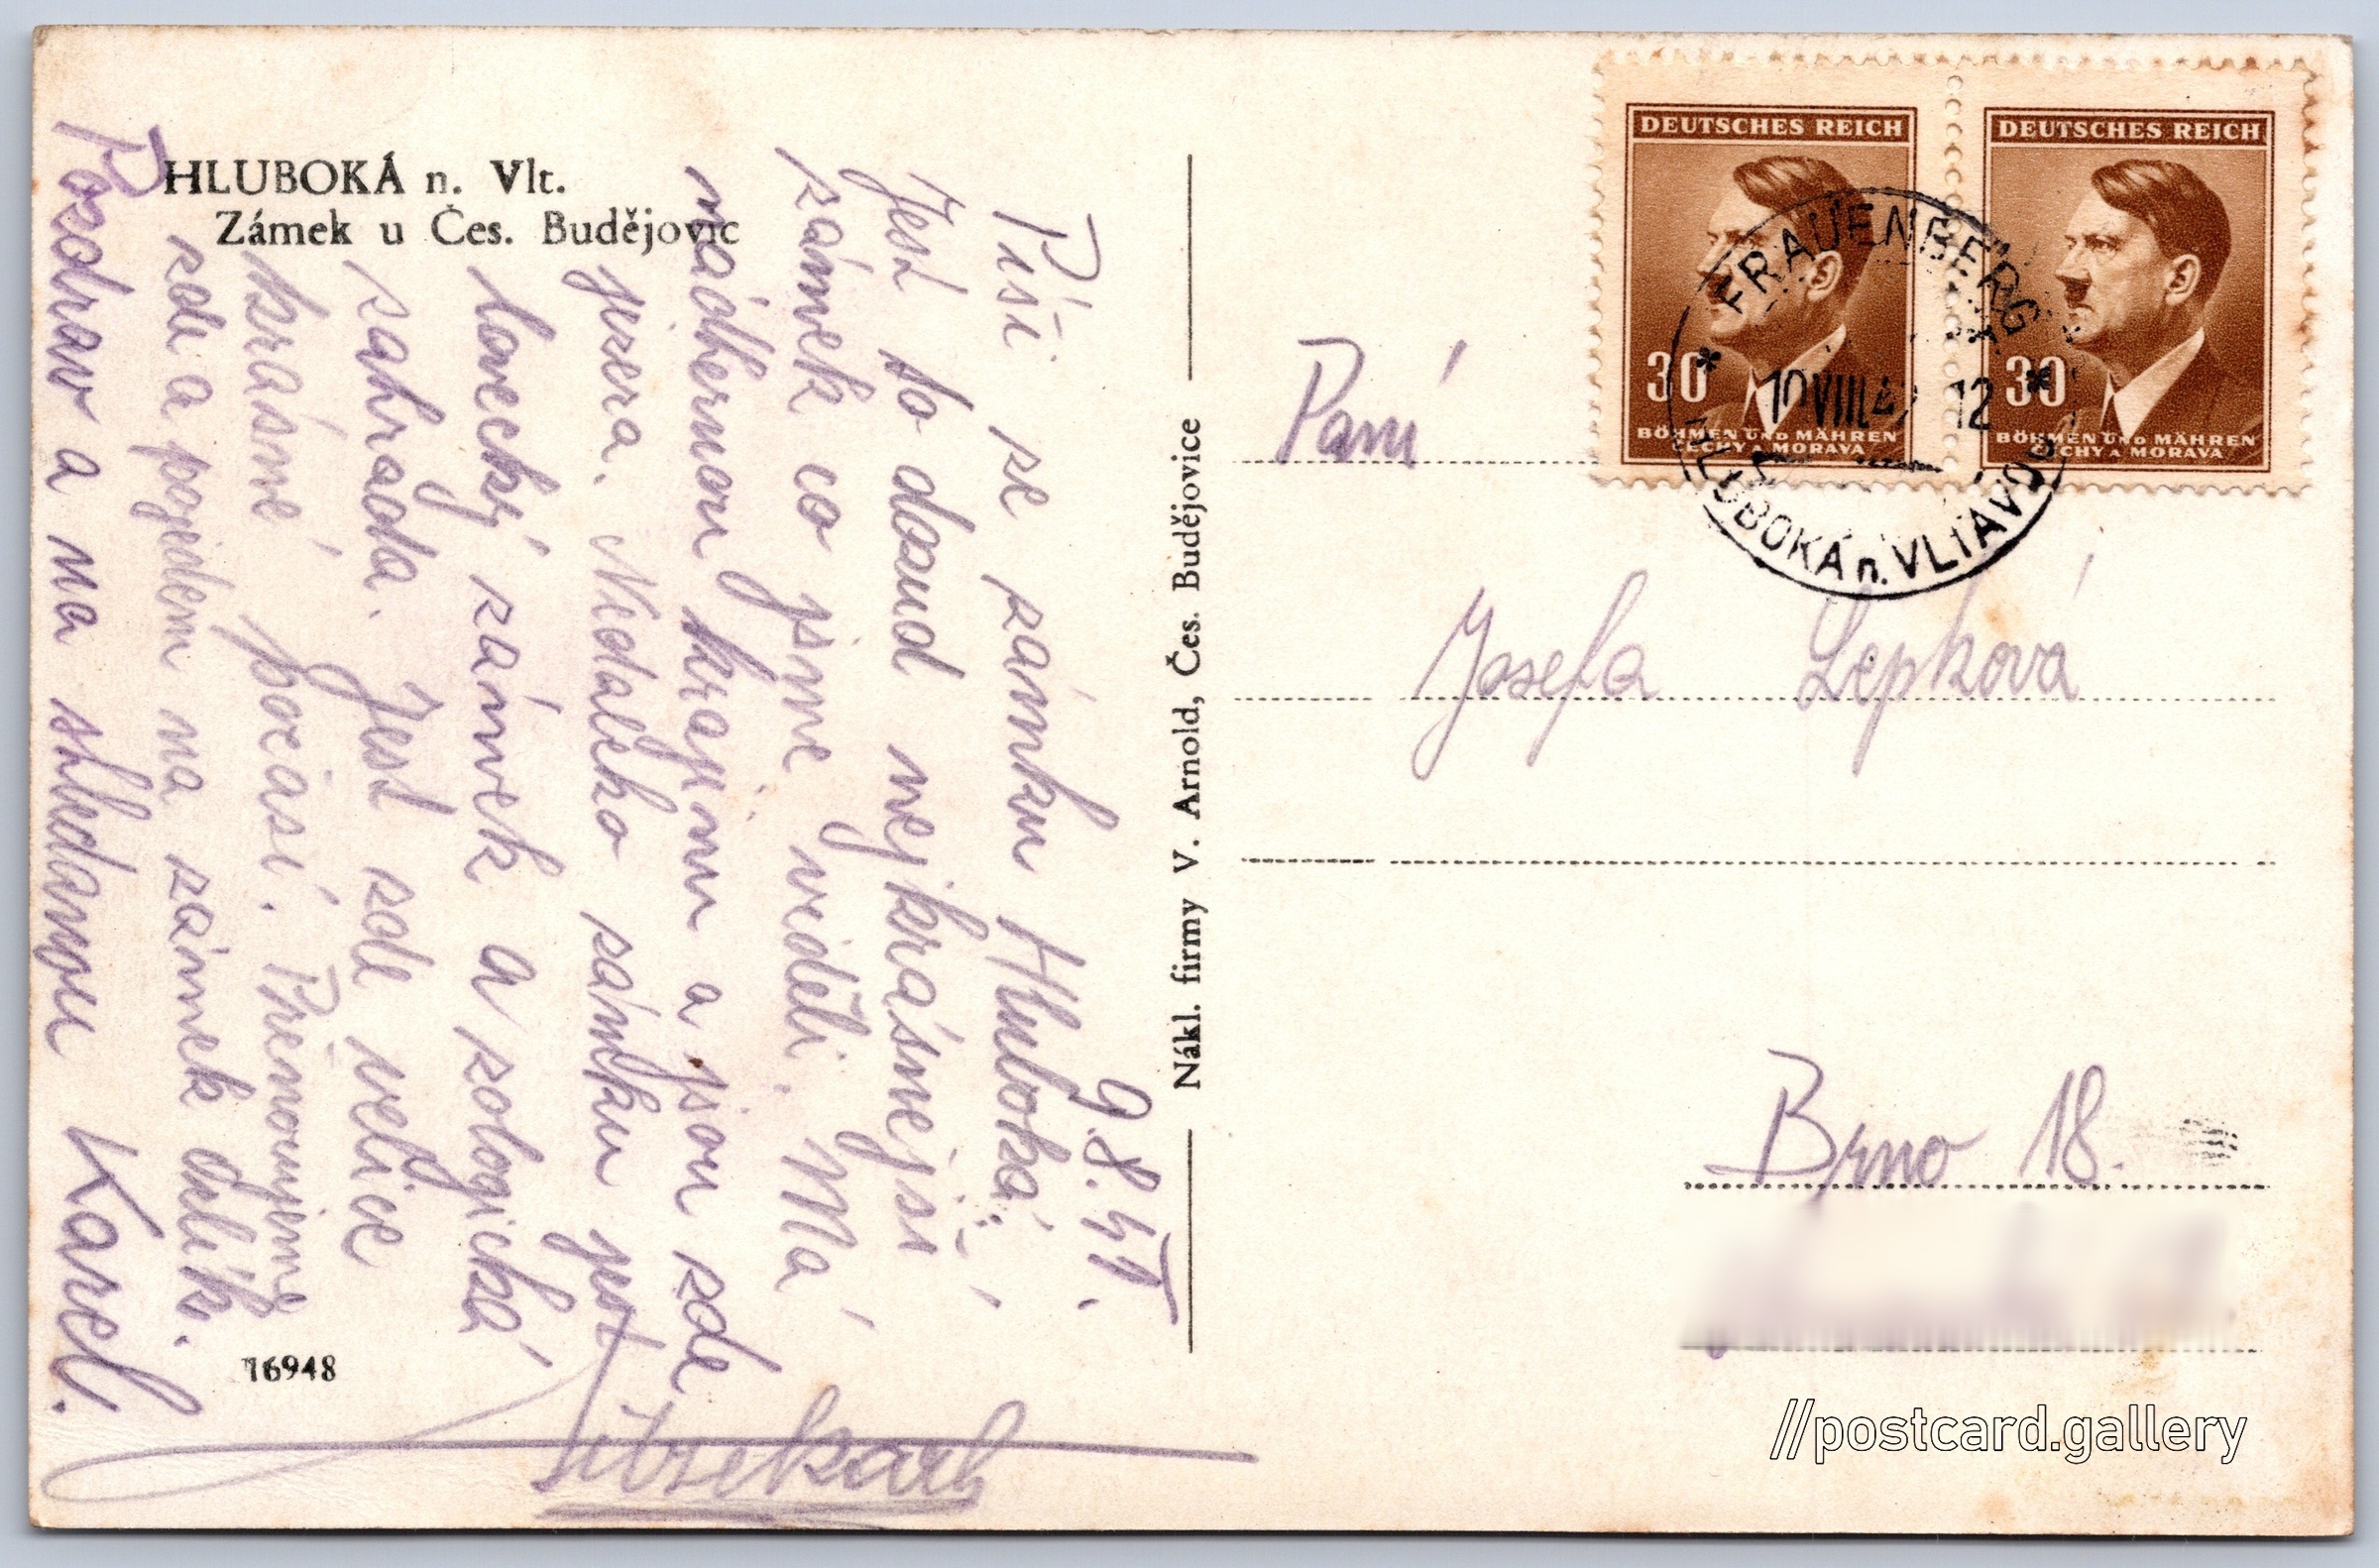 HLUBOKÁ n. Vlt.
Zámek u Čes. Budějovic
9.8.
Píši ze zámku Hluboká.
Jest to dosud nejkrásnejší
zámek co jsme viděli. Má
nádhernou krajinu a jsou zde
jezera. Nedaleko zámku jest
lovecký zámek a zologická
zahrada. Jest zde velice
krásné počasí. Přenocujeme
zde a pojedem na zámek Orlík.
Pozdrav a na shledanou Karel.
16948
Nákl. firmy V. Arnold, Čes. Budějovice
DEUTSCHES REICH
30
BÖHMEN UND MÄHREN
ČECHY A MORAVA
DEUTSCHES REICH
30
BÖHMEN UND MÄHREN
ČECHY A MORAVA
* FRAUENBERG *
10 VIII 12
HLUBOKÁ n. VLTAVOU
Paní
Josefa Lepková
Brno 18.
//postcard.gallery